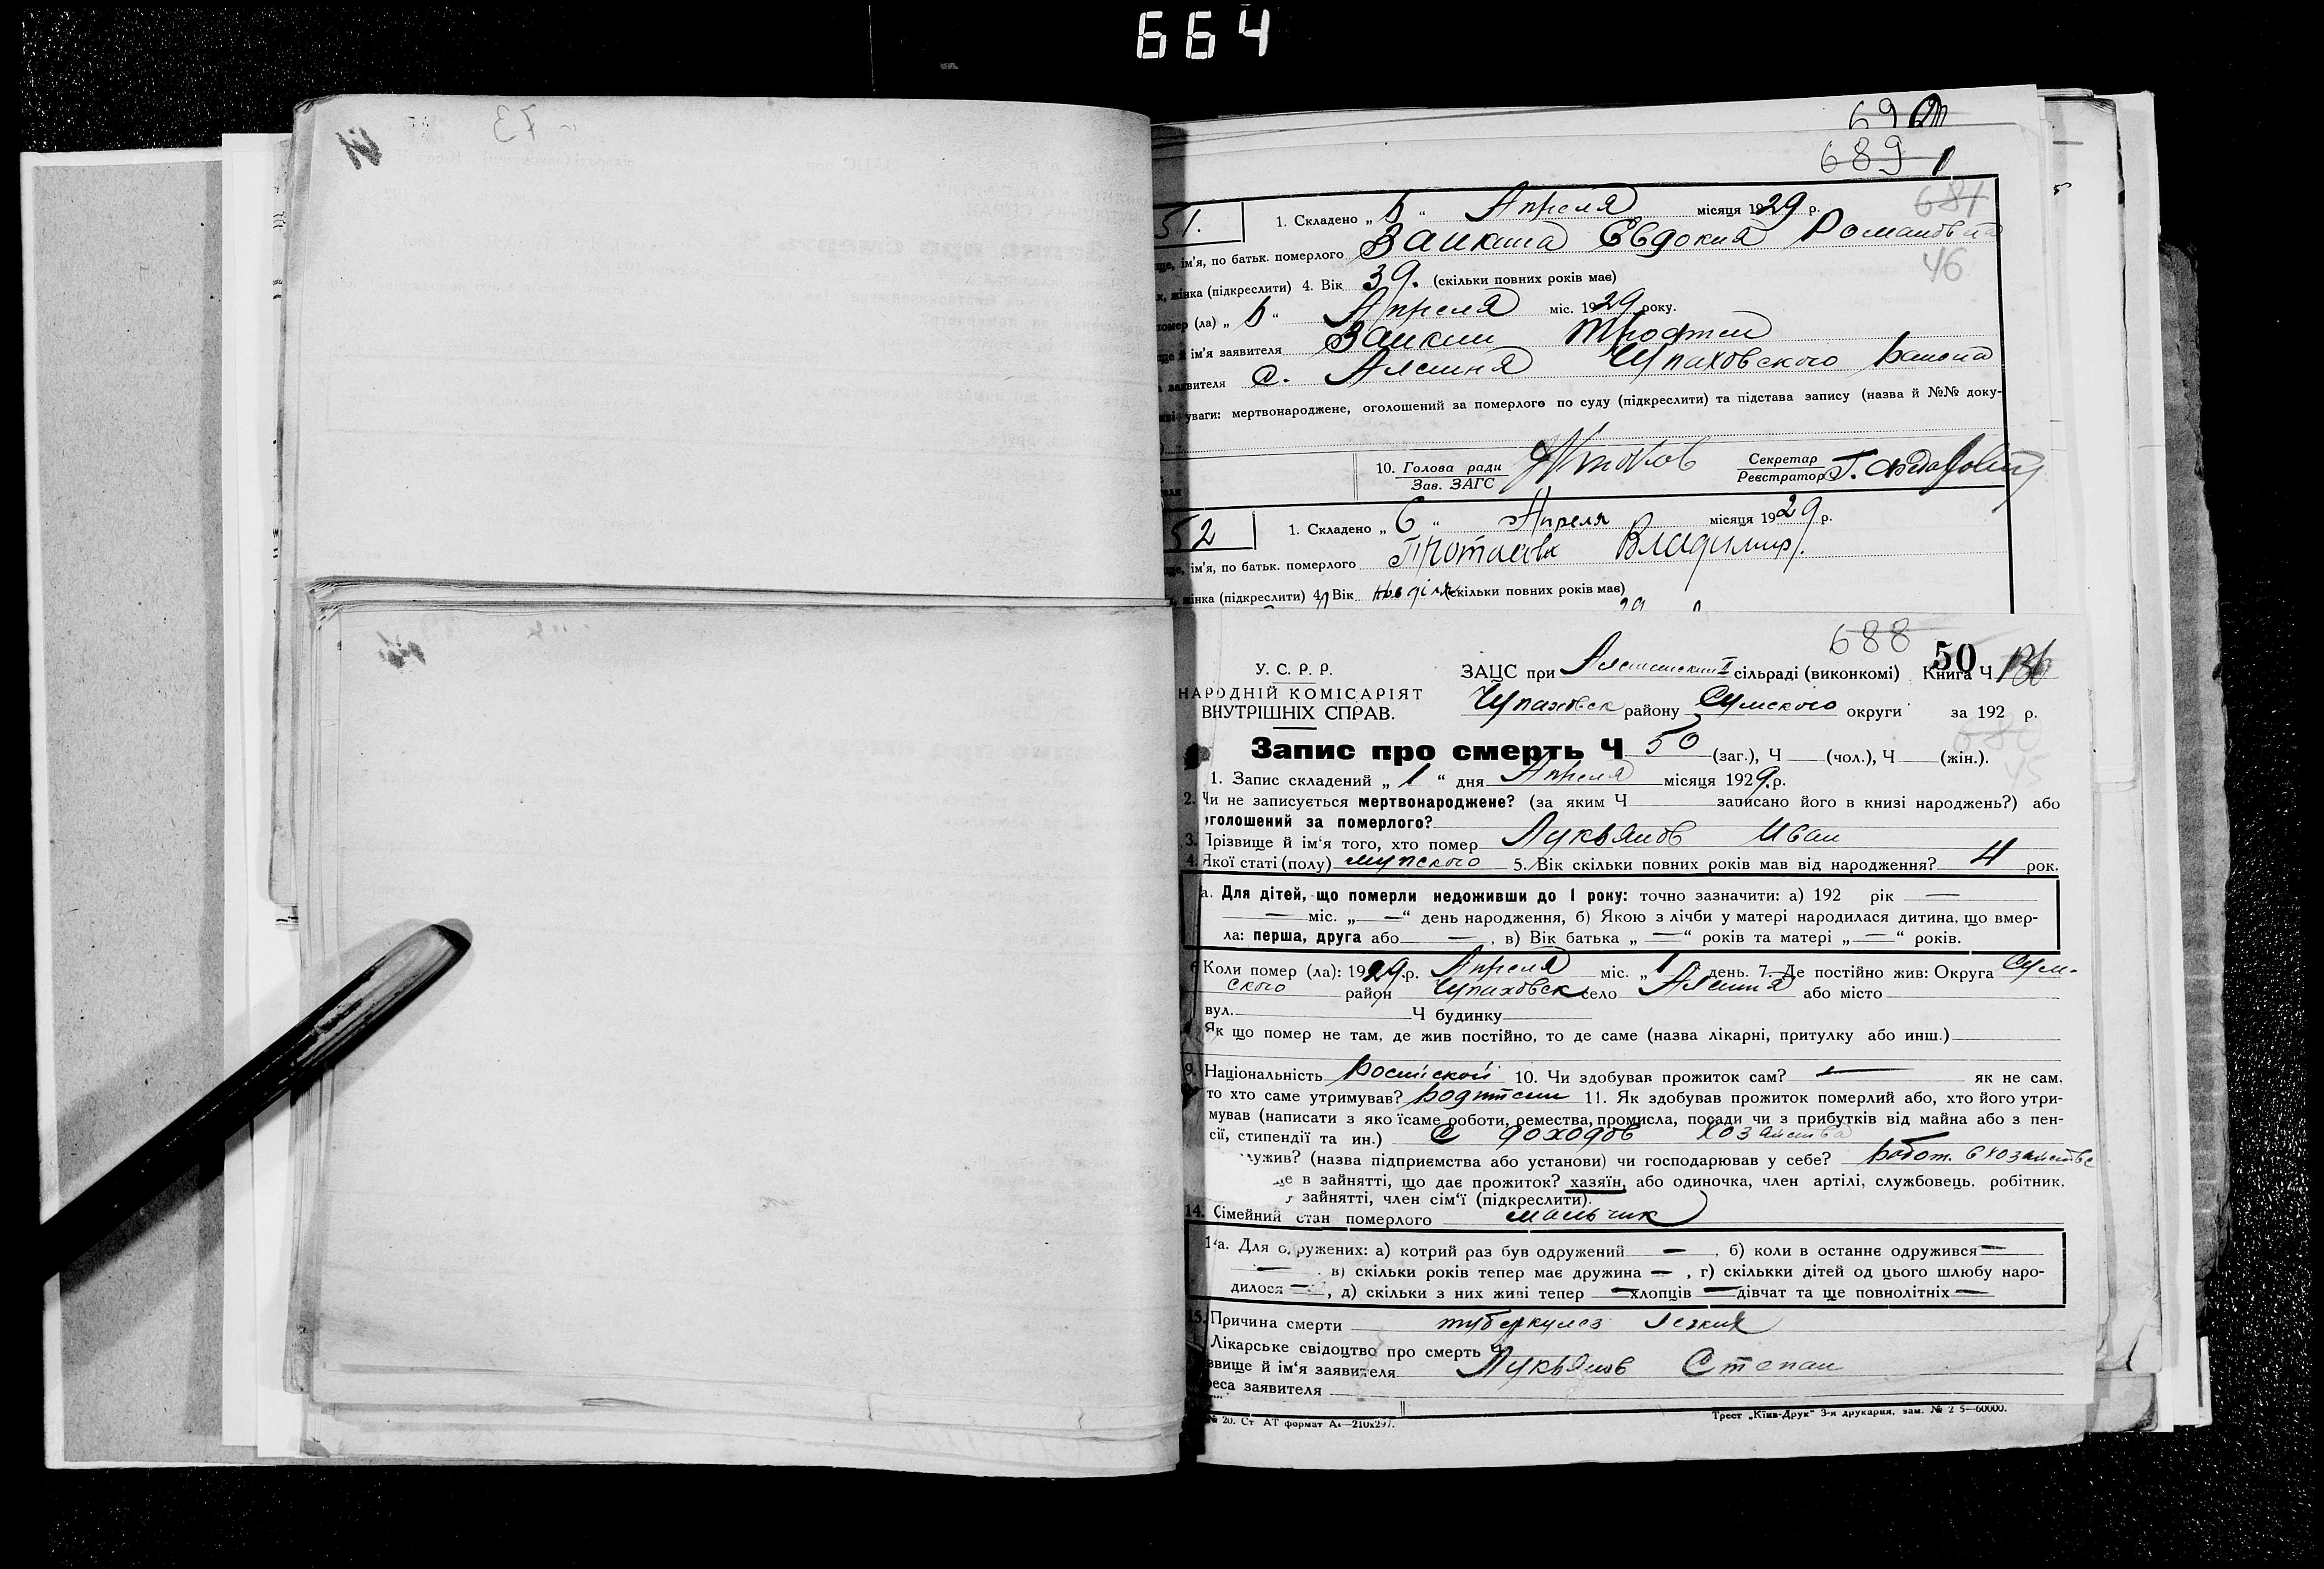 664
690
689
681
51. 1. Складено „ 6 “ Апреля місяця 1929 р.
ще, ім'я, по батьк. померлого Заикина Евдокия Романовна
46
жінка (підкреслити) 4. Вік 39. (скільки повних років має)
помер (ла) „ 6 “ Апреля міс. 1929 року.
ще й ім'я заявителя Заикин Трофим
заявителя с. Алешня Чупаховского района
уваги: мертвонароджене, оголошений за померлого по суду (підкреслити) та підстава запису (назва й №№ доку-
10. Голова ради Секретар
Зав. ЗАГС Реєстратор
52 1. Складено „ 6 “ Апреля місяця 1929 р.
ще, ім'я, по батьк. померлого Протасов Владимир.
жінка (підкреслити) 4. Вік (скільки повних років має)
688
У. С. Р. Р. ЗАЦС при Алешинским І сільраді (виконкомі) 50 Книга Ч. 136
НАРОДНІЙ КОМІСАРІЯТ
ВНУТРІШНІХ СПРАВ. Чупаховск району Сумского округи за 192 р.
680
Запис про смерть Ч 50 (заг.), Ч (чол.), Ч (жін.).
45
1. Запис складений „ 1 “ дня Апреля місяця 1929. р.
2. Чи не записується мертвонароджене? (за яким Ч записано його в книзі народжень?) або
оголошений за померлого?
3. Прізвище й ім‘я того, хто помер Лукьянов Иван
4. Якої статі (полу) мужского 5. Вік скільки повних років мав від народження? 4 рок.
а. Для дітей, що померли недоживши до 1 року: точно зазначити: а) 192 рік —
— міс. „ — “ день народження, б) Якою з лічби у матері народилася дитина, що вмер-
ла: перша, друга або — , в) Вік батька „ — “ років та матері „ — “ років.
6. Коли помер (ла): 1929.р. Апреля міс. „ 1 день. 7. Де постійно жив: Округа Сум-
ского район Чупаховск село Алешня або місто
вул. Ч будинку
Як що помер не там, де жив постійно, то де саме (назва лікарні, притулку або инш.)
9. Національність Росийской 10. Чи здобував прожиток сам? — як не сам.
то хто саме утримував? родители 11. Як здобував прожиток померлий або, хто його утри-
мував (написати з яко їсаме роботи, ремества, промисла, посади чи з прибутків від майна або з пен-
сії, стипендії та ин.) С доходов хозайства
служив? (назва підприємства або установи) чи господарював у себе? Робот. в хозайстве
ще в зайнятті, що дає прожиток? хазяїн, або одиночка, член артілі, службовець, робітник,
у зайнятті, член сім‘ї (підкреслити).
14. Сімейний стан померлого мальчик
14а. Для одружених: а) котрий раз був одружений — , б) коли в останнє одружився —
— . в) скільки років тепер має дружина — , г) скількки дітей од цього шлюбу наро-
дилося — , д) скільки з них живі тепер — хлопців — дівчат та ще повнолітніх —
15. Причина смерти туберкулез легких
Лікарське свідоцтво про смерть Ч
звище й ім‘я заявителя Лукьянов Степан
реса заявителя
№ 20. Ст АТ формат А4—210х297. Трест „Київ-Друк“ 3-я друкарня, зам. № 2 5—60000.